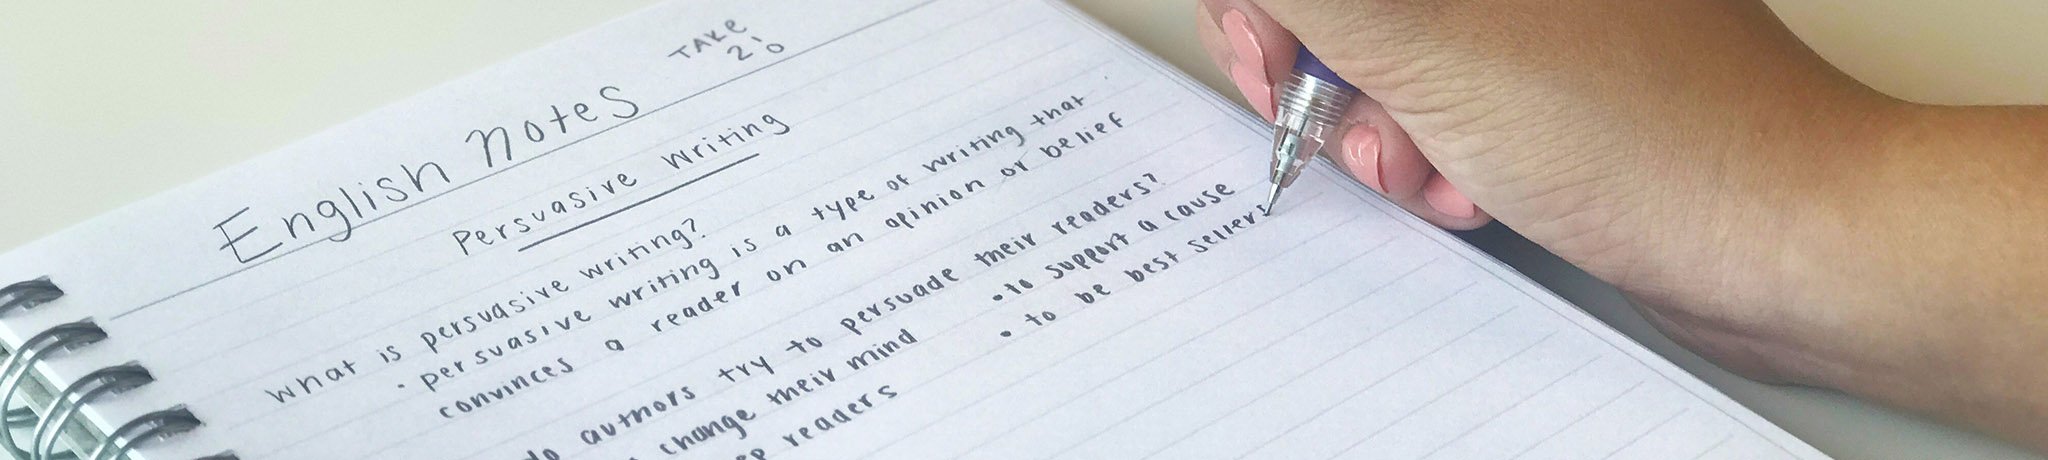 TAKE
2!
English notes
Persuasive writing
What is persuasive writing?
• persuasive writing is a type of writing that
convinces a reader on an opinion or belief
do authors try to persuade their readers?
change their mind • to support a cause
readers • to be best sellers